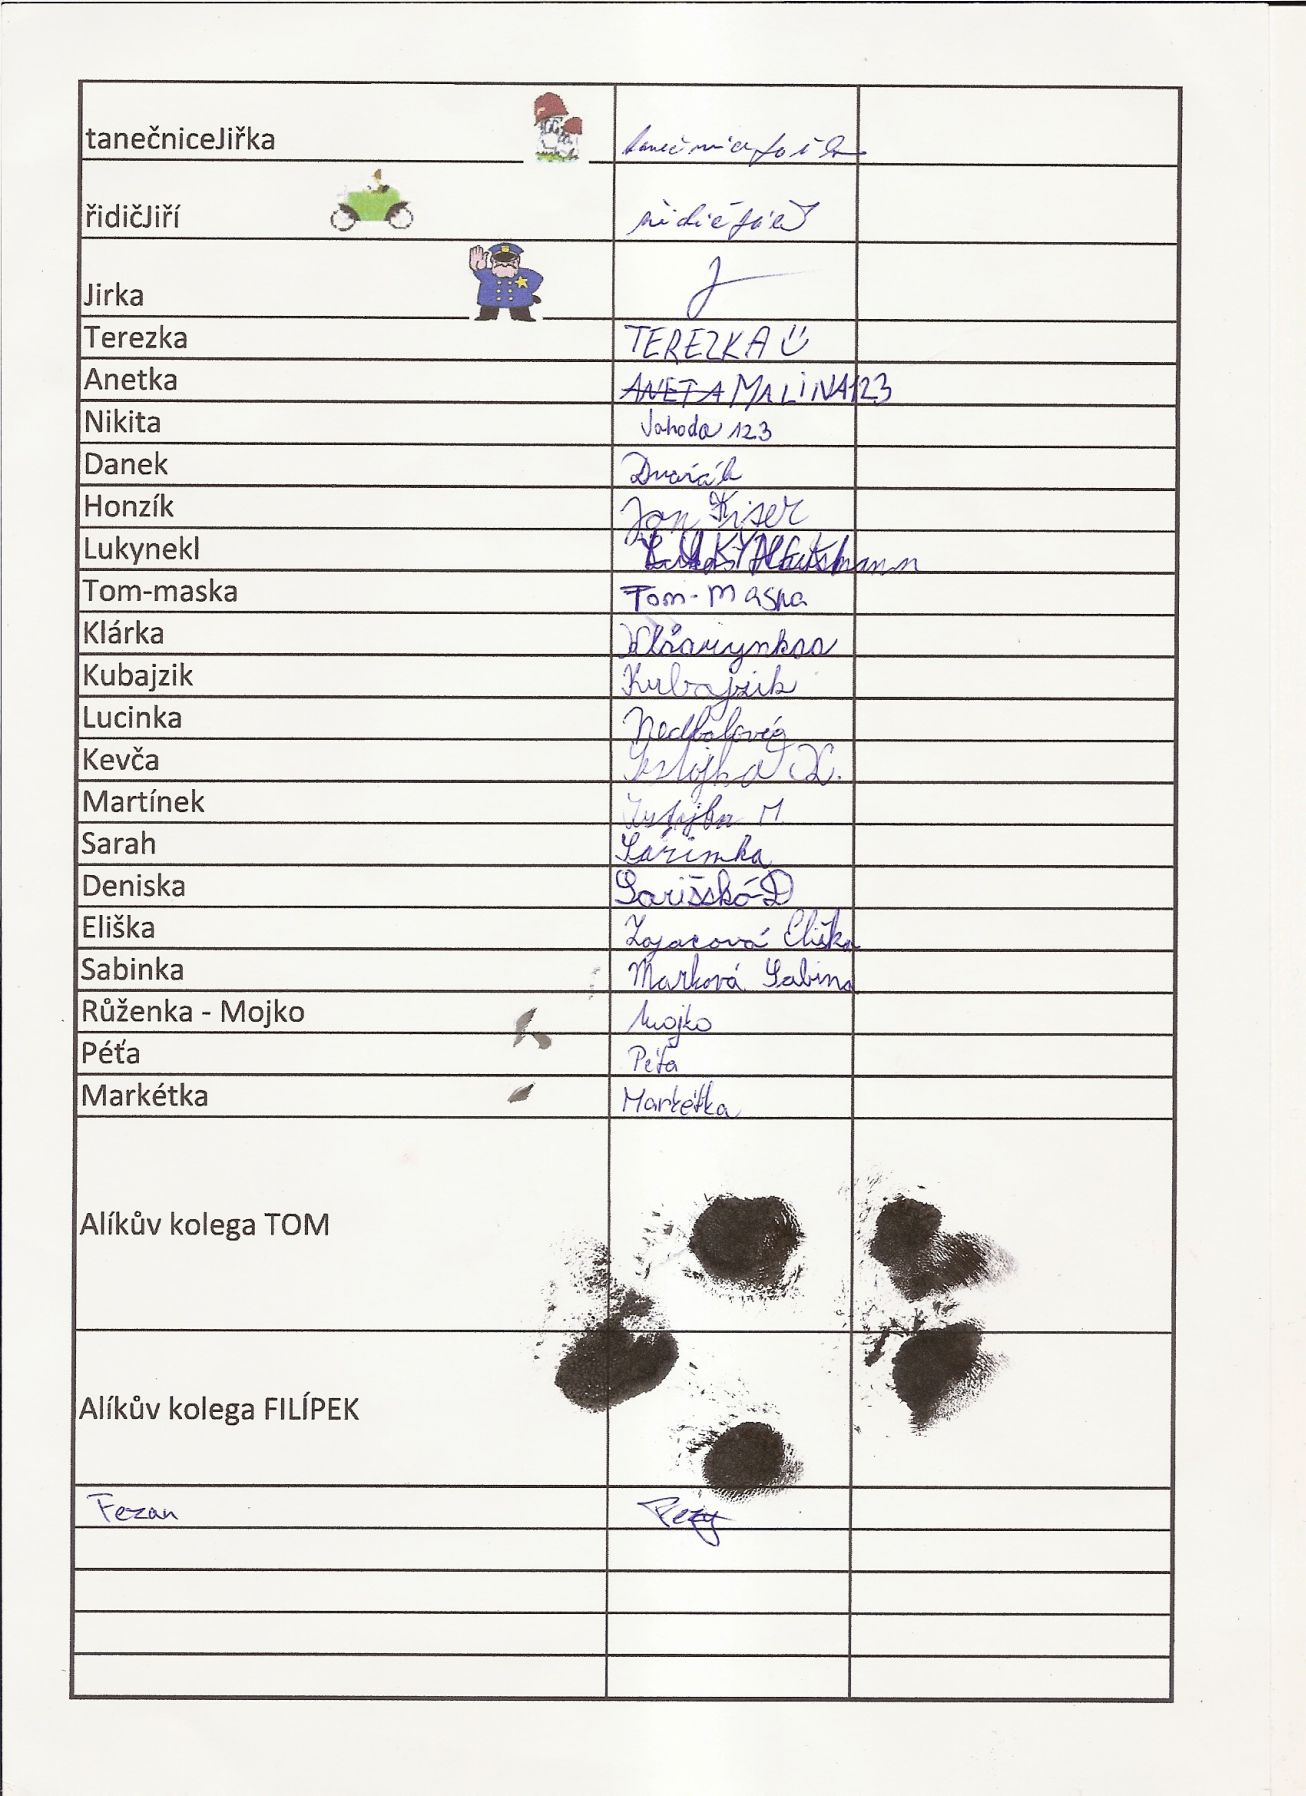 tanečniceJiřka
řidičJiří
Jirka
Terezka TEREZKA
Anetka ANETA MALINA123
Nikita Jahoda 123
Danek Dvořák
Honzík Jan
Lukynekl
Tom-maska Tom-maska
Klárka
Kubajzik Kubajzik
Lucinka
Kevča
Martínek
Sarah
Deniska
Eliška Zajacová Eliška
Sabinka Marková Sabina
Růženka - Mojko Mojko
Péťa Péťa
Markétka Markétka
Alíkův kolega TOM
Alíkův kolega FILÍPEK
Fezan Fezy